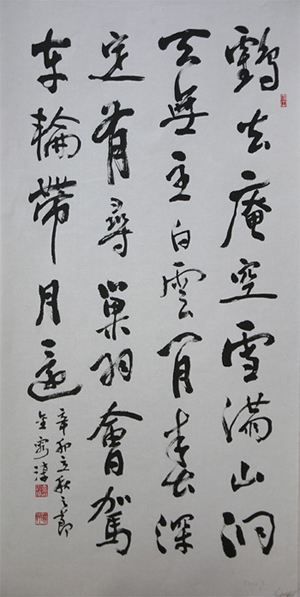 鶴去庵空雪滿山洞
天無主白雲閒春深
定有尋巢羽會駕
車輪帶月還
辛卯立秋之節
金